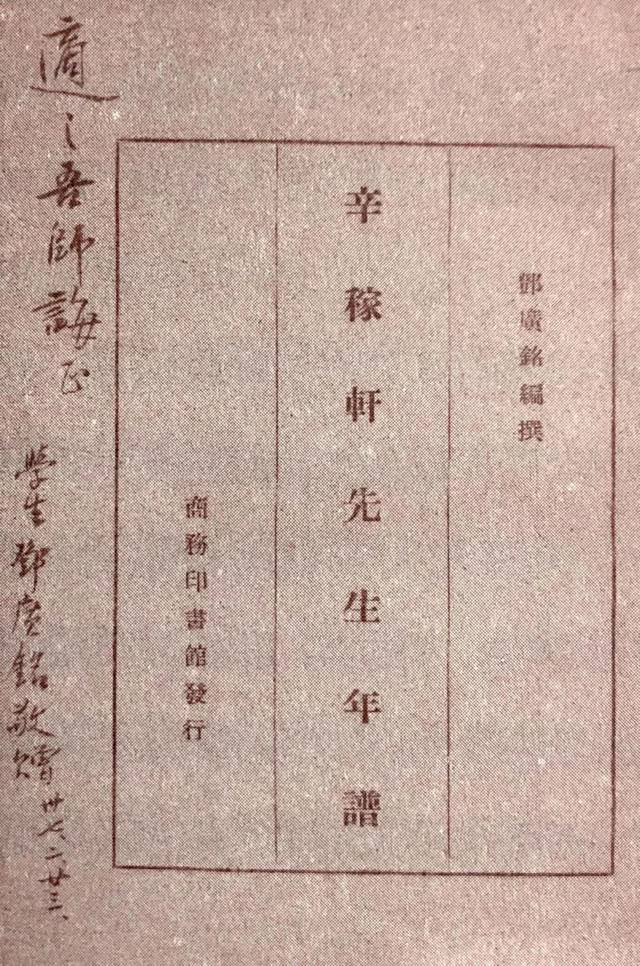 鄧廣銘編撰
辛稼軒先生年譜
商務印書館發行
適之吾師誨正
學生鄧廣銘敬贈 卅七、二、廿三、